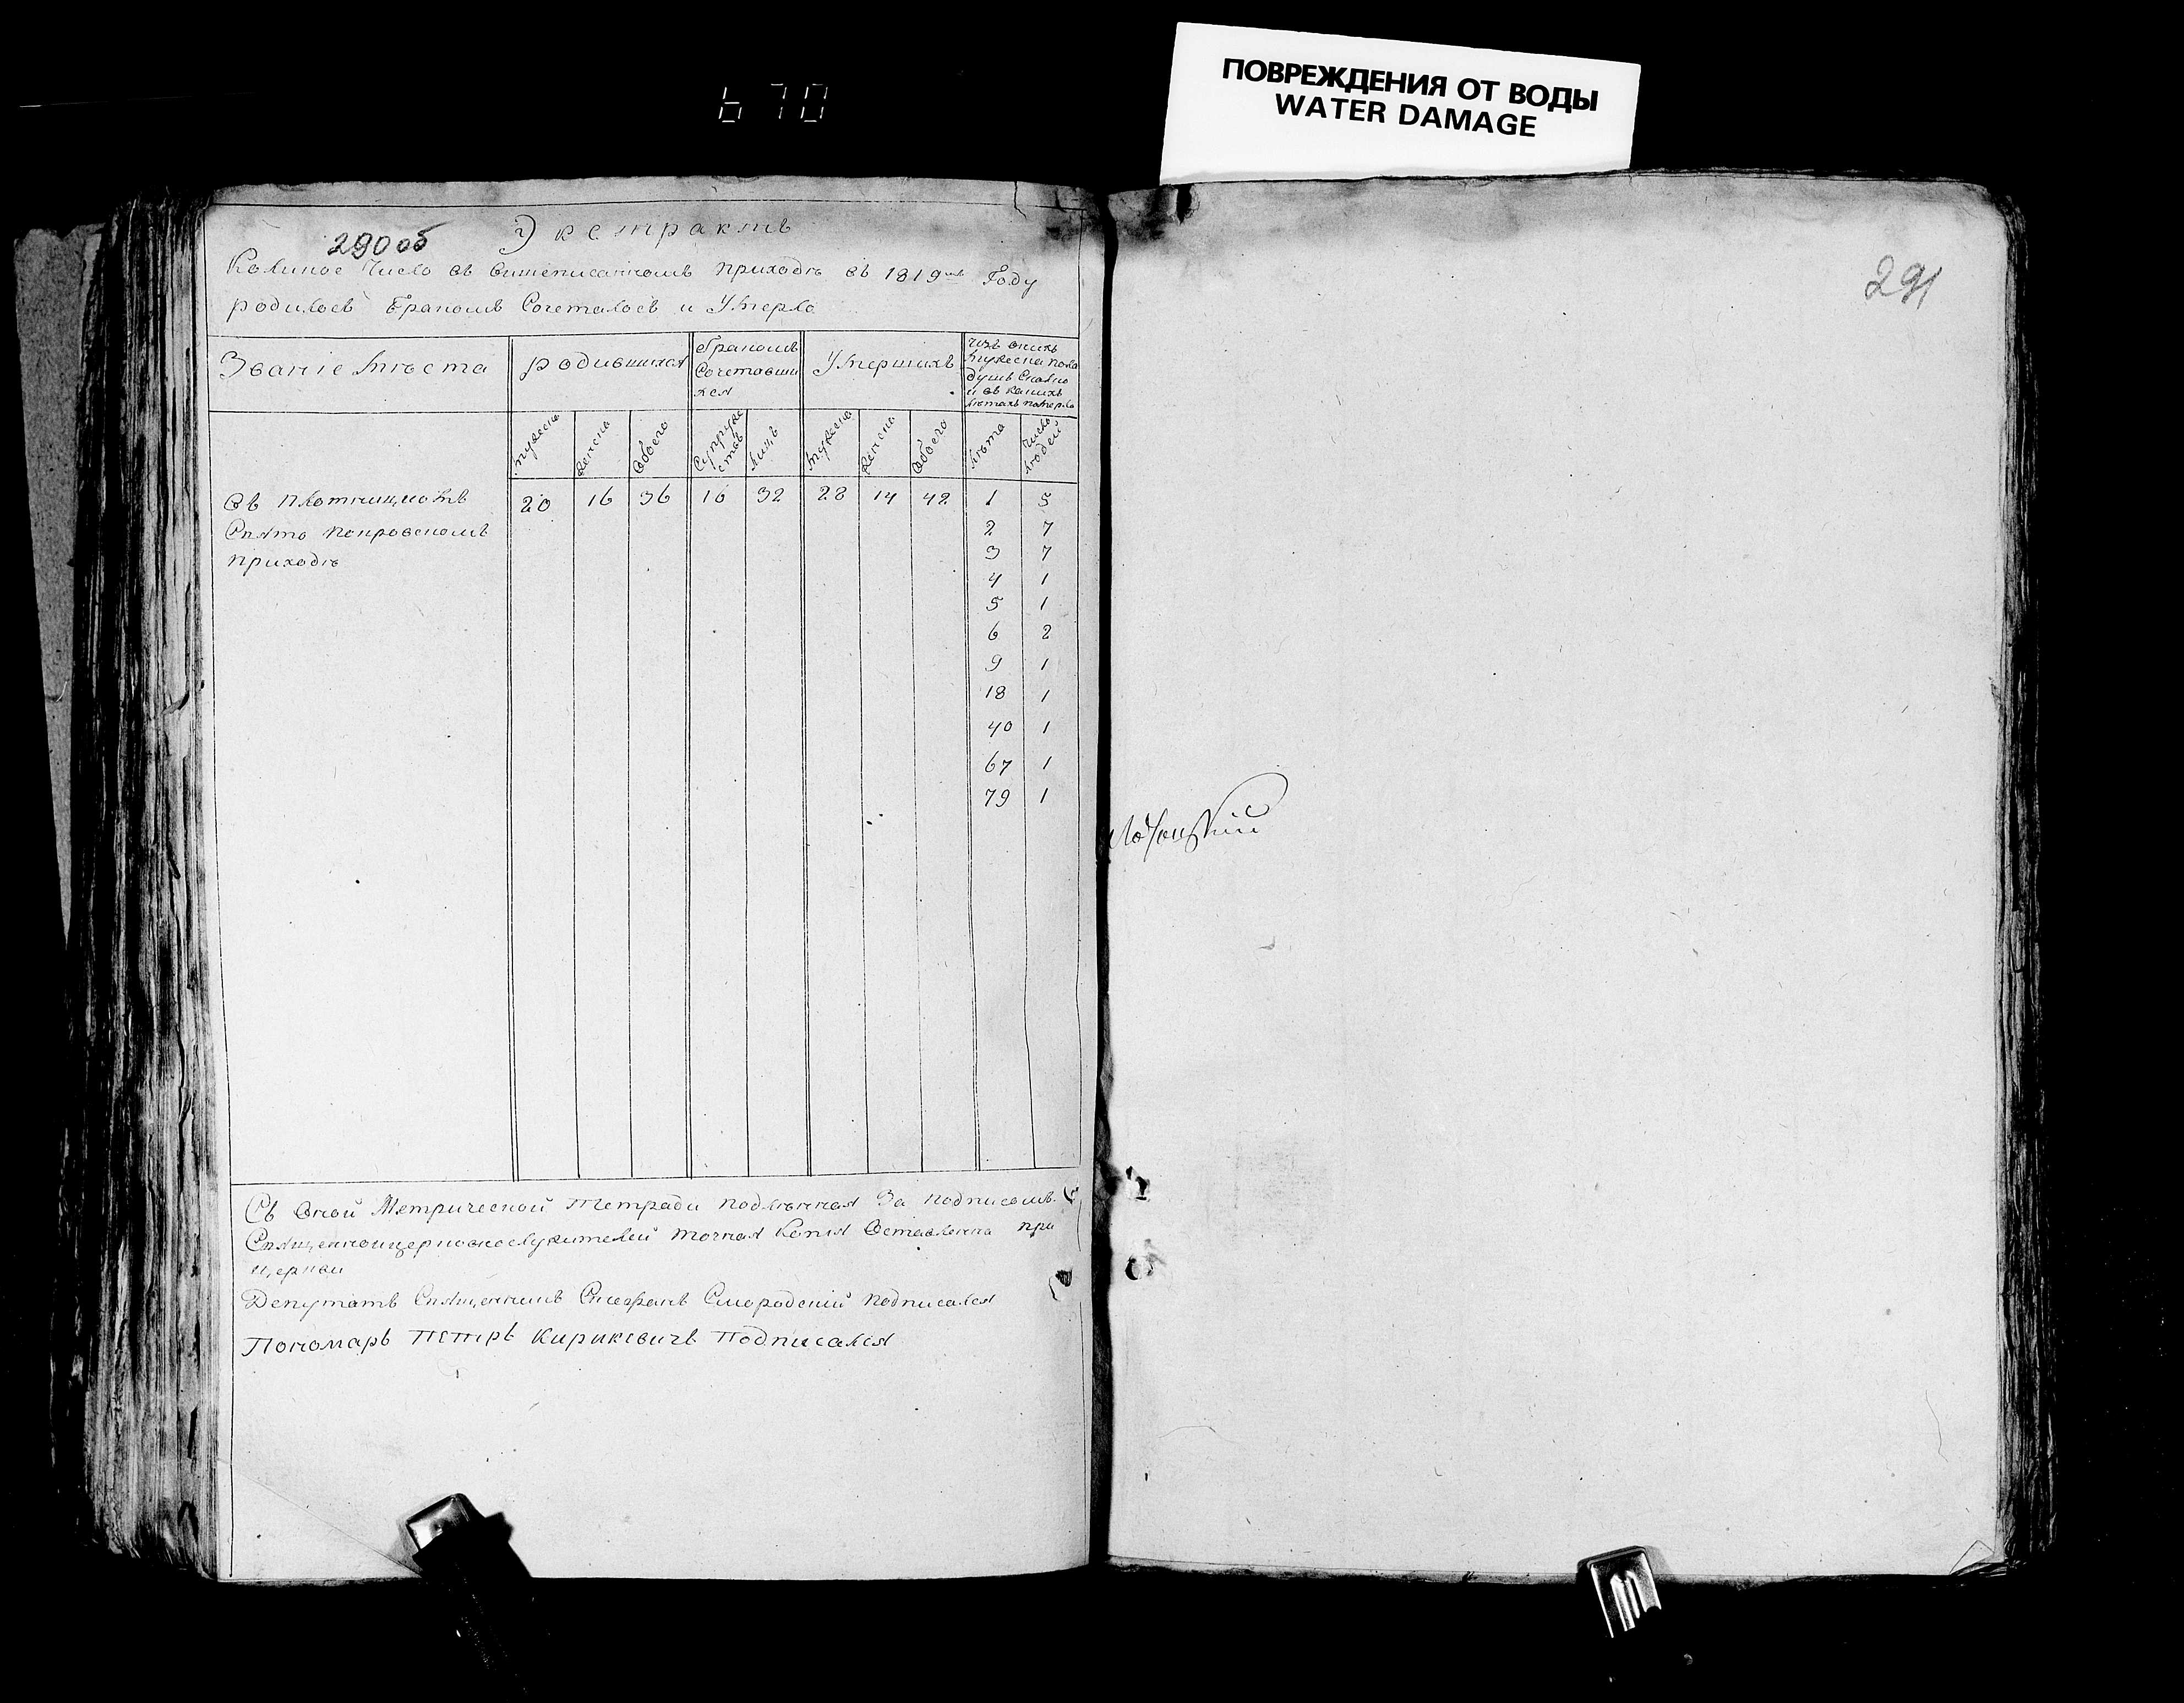 670
ПОВРЕЖДЕНИЯ ОТ ВОДЫ
WATER DAMAGE
290об
Экстрактъ
Коликое Число въ вишеписанномъ приходѣ въ 1819мъ Году
родилось бракомъ Сочеталось и Умерло
Званіе мѣста родившихся бракомъ Сочетавшихся Умершихъ изъ оныхъ мужеска пола душъ Сколко и въ какихъ лѣтахъ померло
мужеска женска обоего Супружествъ лицъ мужеска женска обоего лѣта число людей
Въ Плотницкомъ 20 16 36 16 32 28 14 42 1 5
Свято Покровскомъ 2 7
приходѣ 3 7
4 1
5 1
6 2
9 1
18 1
40 1
67 1
79 1
Съ Оной Метрической Тетради подлѣнная За подписомъ
Священноцерковнослужителей точная Копія Оставленна при
церкви
Депутатъ Священникъ Стефанъ Смородскій подписался
Пономарь Петръ Кириковичъ Подписался
291